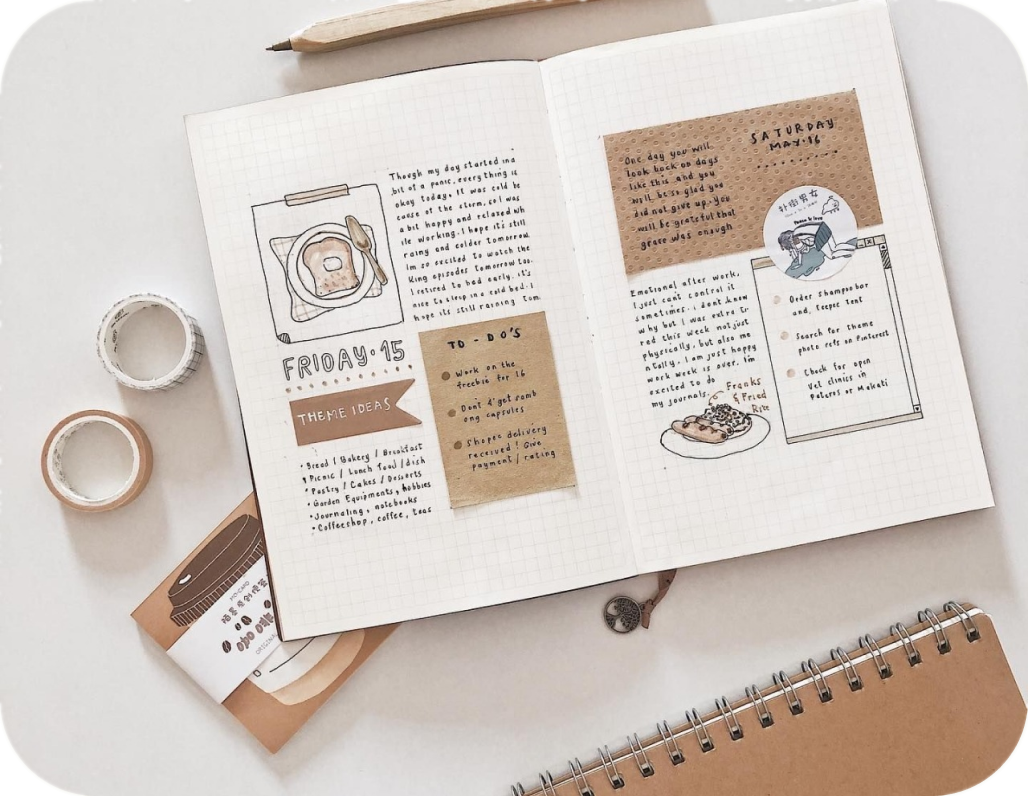 Though my day started in a
bit of a panic, everything is
okay today. It was cold be
cause of the storm, so I was
a bit happy and relaxed wh
ile working. I hope it's still
rainy and colder tomorrow
Im so excited to watch the
King episodes tomorrow too.
I retired to bed early. it's
nice to sleep in a cold bed. I
hope its still raining tom.
FRIDAY • 15
THEME IDEAS
• Bread / Bakery / Breakfast
• Picnic / Lunch food / dish
• Pastry / Cakes / Desserts
• Garden Equipments, hobbies
• Journaling, notebooks
• Coffeeshop, coffee, teas
TO - DO'S
Work on the
freebie for 16
Dont d'get comb
ong capsules
Shopee delivery
received! Give
payment / rating
One day you will
look back on days
like this and you
will be so glad you
did not give up. You
will be grateful that
grace was enough
SATURDAY
MAY • 16
扑街男女
Emotional after work,
I just cant control it
sometimes. i dont know
why but I was extra ti
red this week not just
physically, but also me
ntally. I am just happy
work week is over. Im
excited to do
my journals.
Franks
& Fried
Rice
Order shampoo bar
and, freepee tent
Search for theme
photo refs on Pinterest
Check for open
Vet clinics in
Pateros or Makati
MO•CARD
ORIGINAL